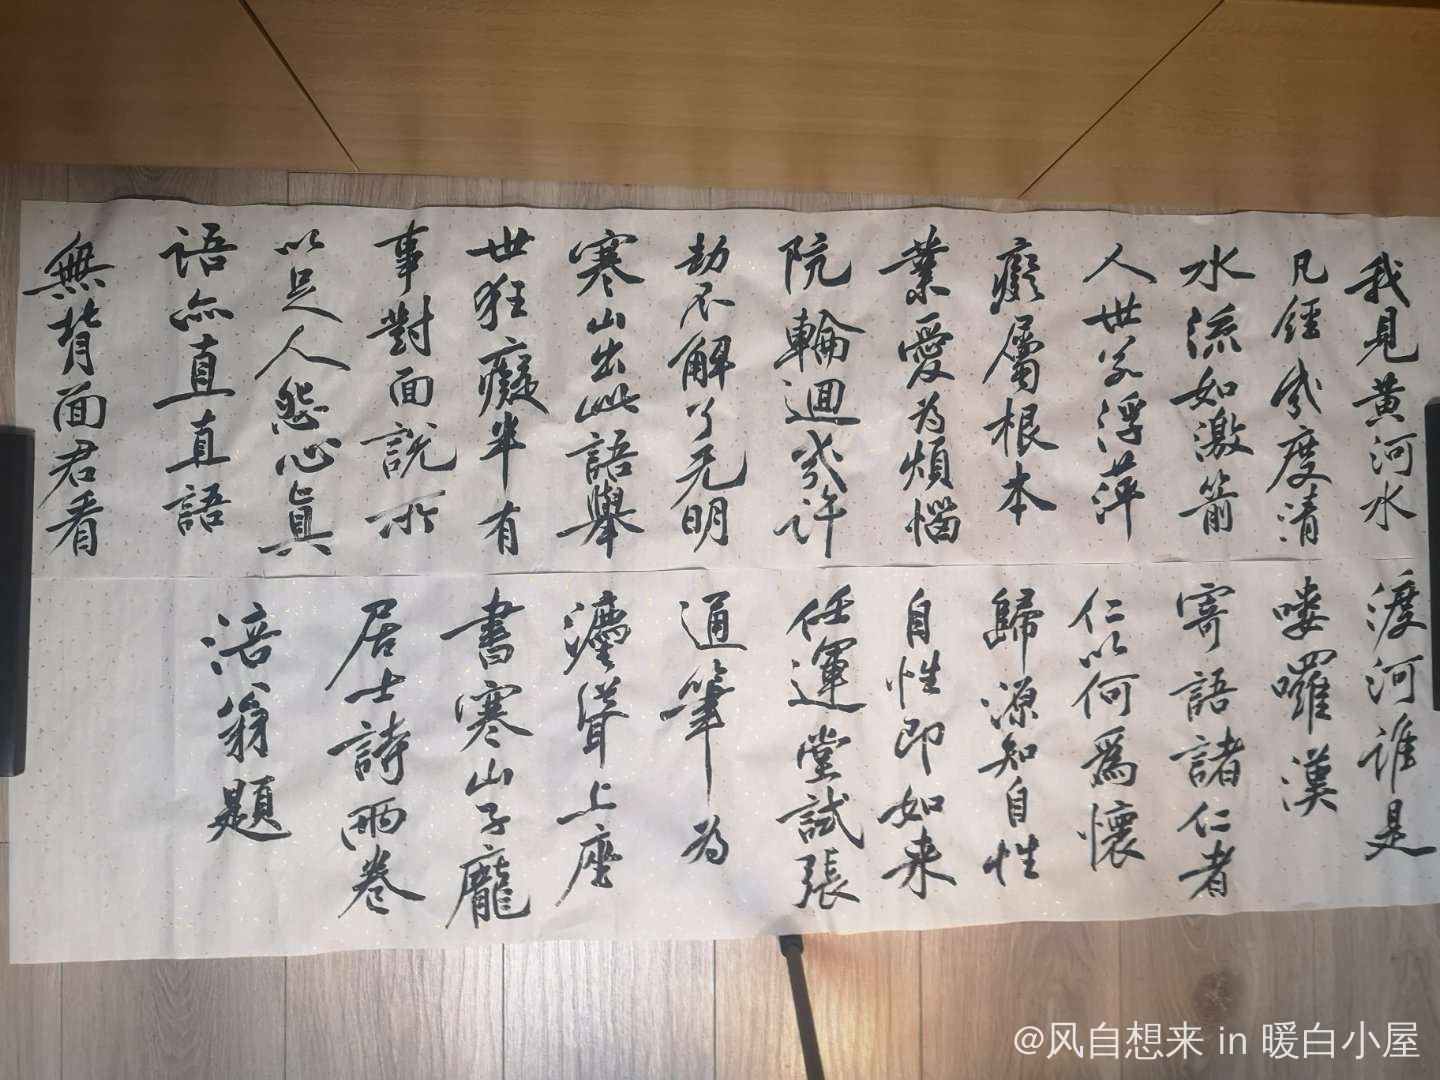 我見黄河水
凡經幾度清
水流如激箭
人世若浮萍
癡屬根本
業愛為煩惱
阬輪迴幾許
劫不解了无明
寒山出此語舉
世狂癡半有
事對面說所
以足人怨心真
語亦直直語
無背面君看
渡河誰是
嘍囉漢
寄語諸仁者
仁以何為懷
歸源知自性
自性即如来
任運堂試張
通筆為
法聳上座
書寒山子龐
居士詩兩卷
涪翁題
@风自想来 in 暖白小屋